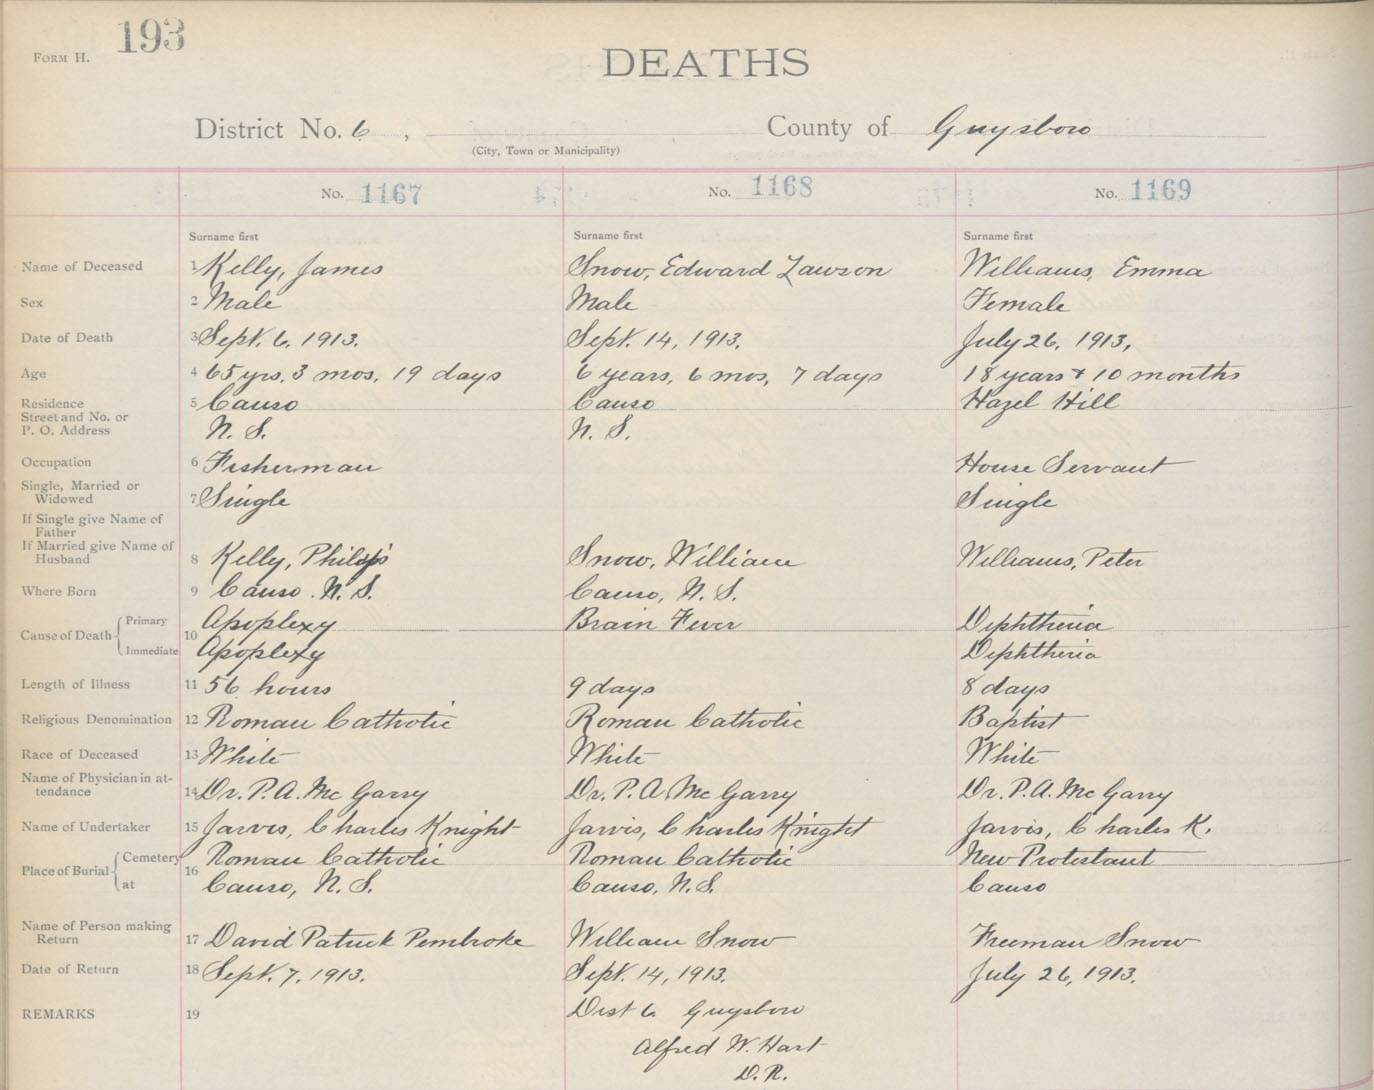 193
FORM H.
DEATHS
District No. 6 , County of Guysboro
(City, Town or Municipality)
No. 1167 No. 1168 No. 1169
Surname first Surname first Surname first
Name of Deceased 1 Kelly, James Snow, Edward Lawson Williams, Emma
Sex 2 Male Male Female
Date of Death 3 Sept. 6, 1913. Sept. 14, 1913. July 26, 1913,
Age 4 65 yrs, 3 mos, 19 days 6 years, 6 mos, 7 days 18 years + 10 months
Residence 5 Canso Canso Hazel Hill
Street and No. or
P. O. Address N. S. N. S.
Occupation 6 Fisherman House Servant
Single, Married or
Widowed 7 Single Single
If Single give Name of
Father
If Married give Name of
Husband 8 Kelly, Snow, William Williams, Peter
Where Born 9 Canso. N. S. Canso, N. S.
Primary Apoplexy Brain Fever Diphtheria
Cause of Death 10
Immediate Apoplexy Diphtheria
Length of Illness 11 56 hours 9 days 8 days
Religious Denomination 12 Roman Catholic Roman Catholic Baptist
Race of Deceased 13 White White White
Name of Physician in at-
tendance 14 Dr. P. A. Mc Garry Dr. P. A. Mc Garry Dr. P. A. Mc Garry
Name of Undertaker 15 Jarvis, Charles Knight Jarvis, Charles Knight Jarvis, Charles K.
Cemetery Roman Catholic Roman Catholic New Protestant
Place of Burial 16
at Canso, N. S. Canso, N. S. Canso
Name of Person making
Return 17 David Patrick Pembroke William Snow Freeman Snow
Date of Return 18 Sept. 7, 1913. Sept. 14, 1913. July 26, 1913.
REMARKS 19 Dist 6 Guysboro
Alfred W. Hart
D. R.